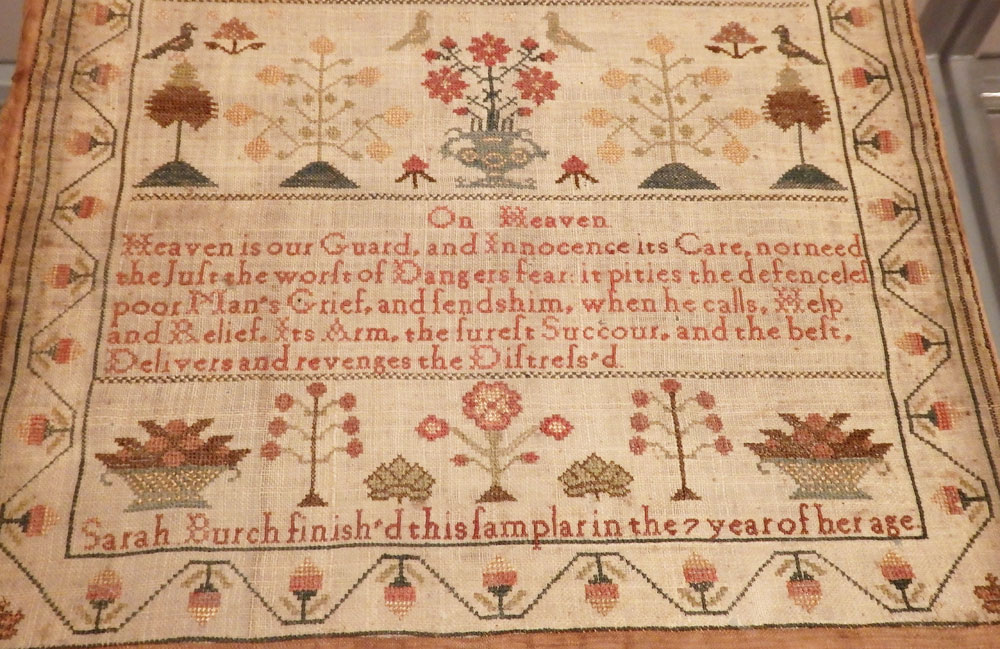 On Heaven
Heaven is our Guard, and Innocence its Care, nor need
the Juſt the worſt of Dangers fear: it pities the defenceleſ
poor Man's Grief, and ſends him, when he calls, Help
and Relief. Its Arm, the ſureſt Succour, and the beſt,
Delivers and revenges the Diſtreſs'd
Sarah Burch finish'd this ſamplar in the 7 year of her age